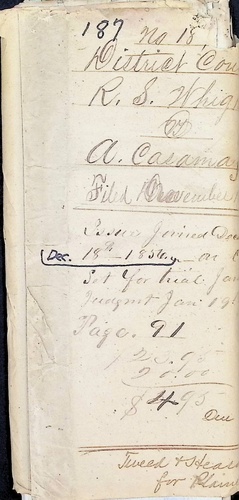 187 No 18
District Cou
R. S. Whig
vs
A. Casama
Filed November
Issue joined Dec
Dec. 18th 1856
Set for trial Jan
Judgmt Jan 19
Page. 91
20.00
$4.95
Due
Tweed & Head
for Plain